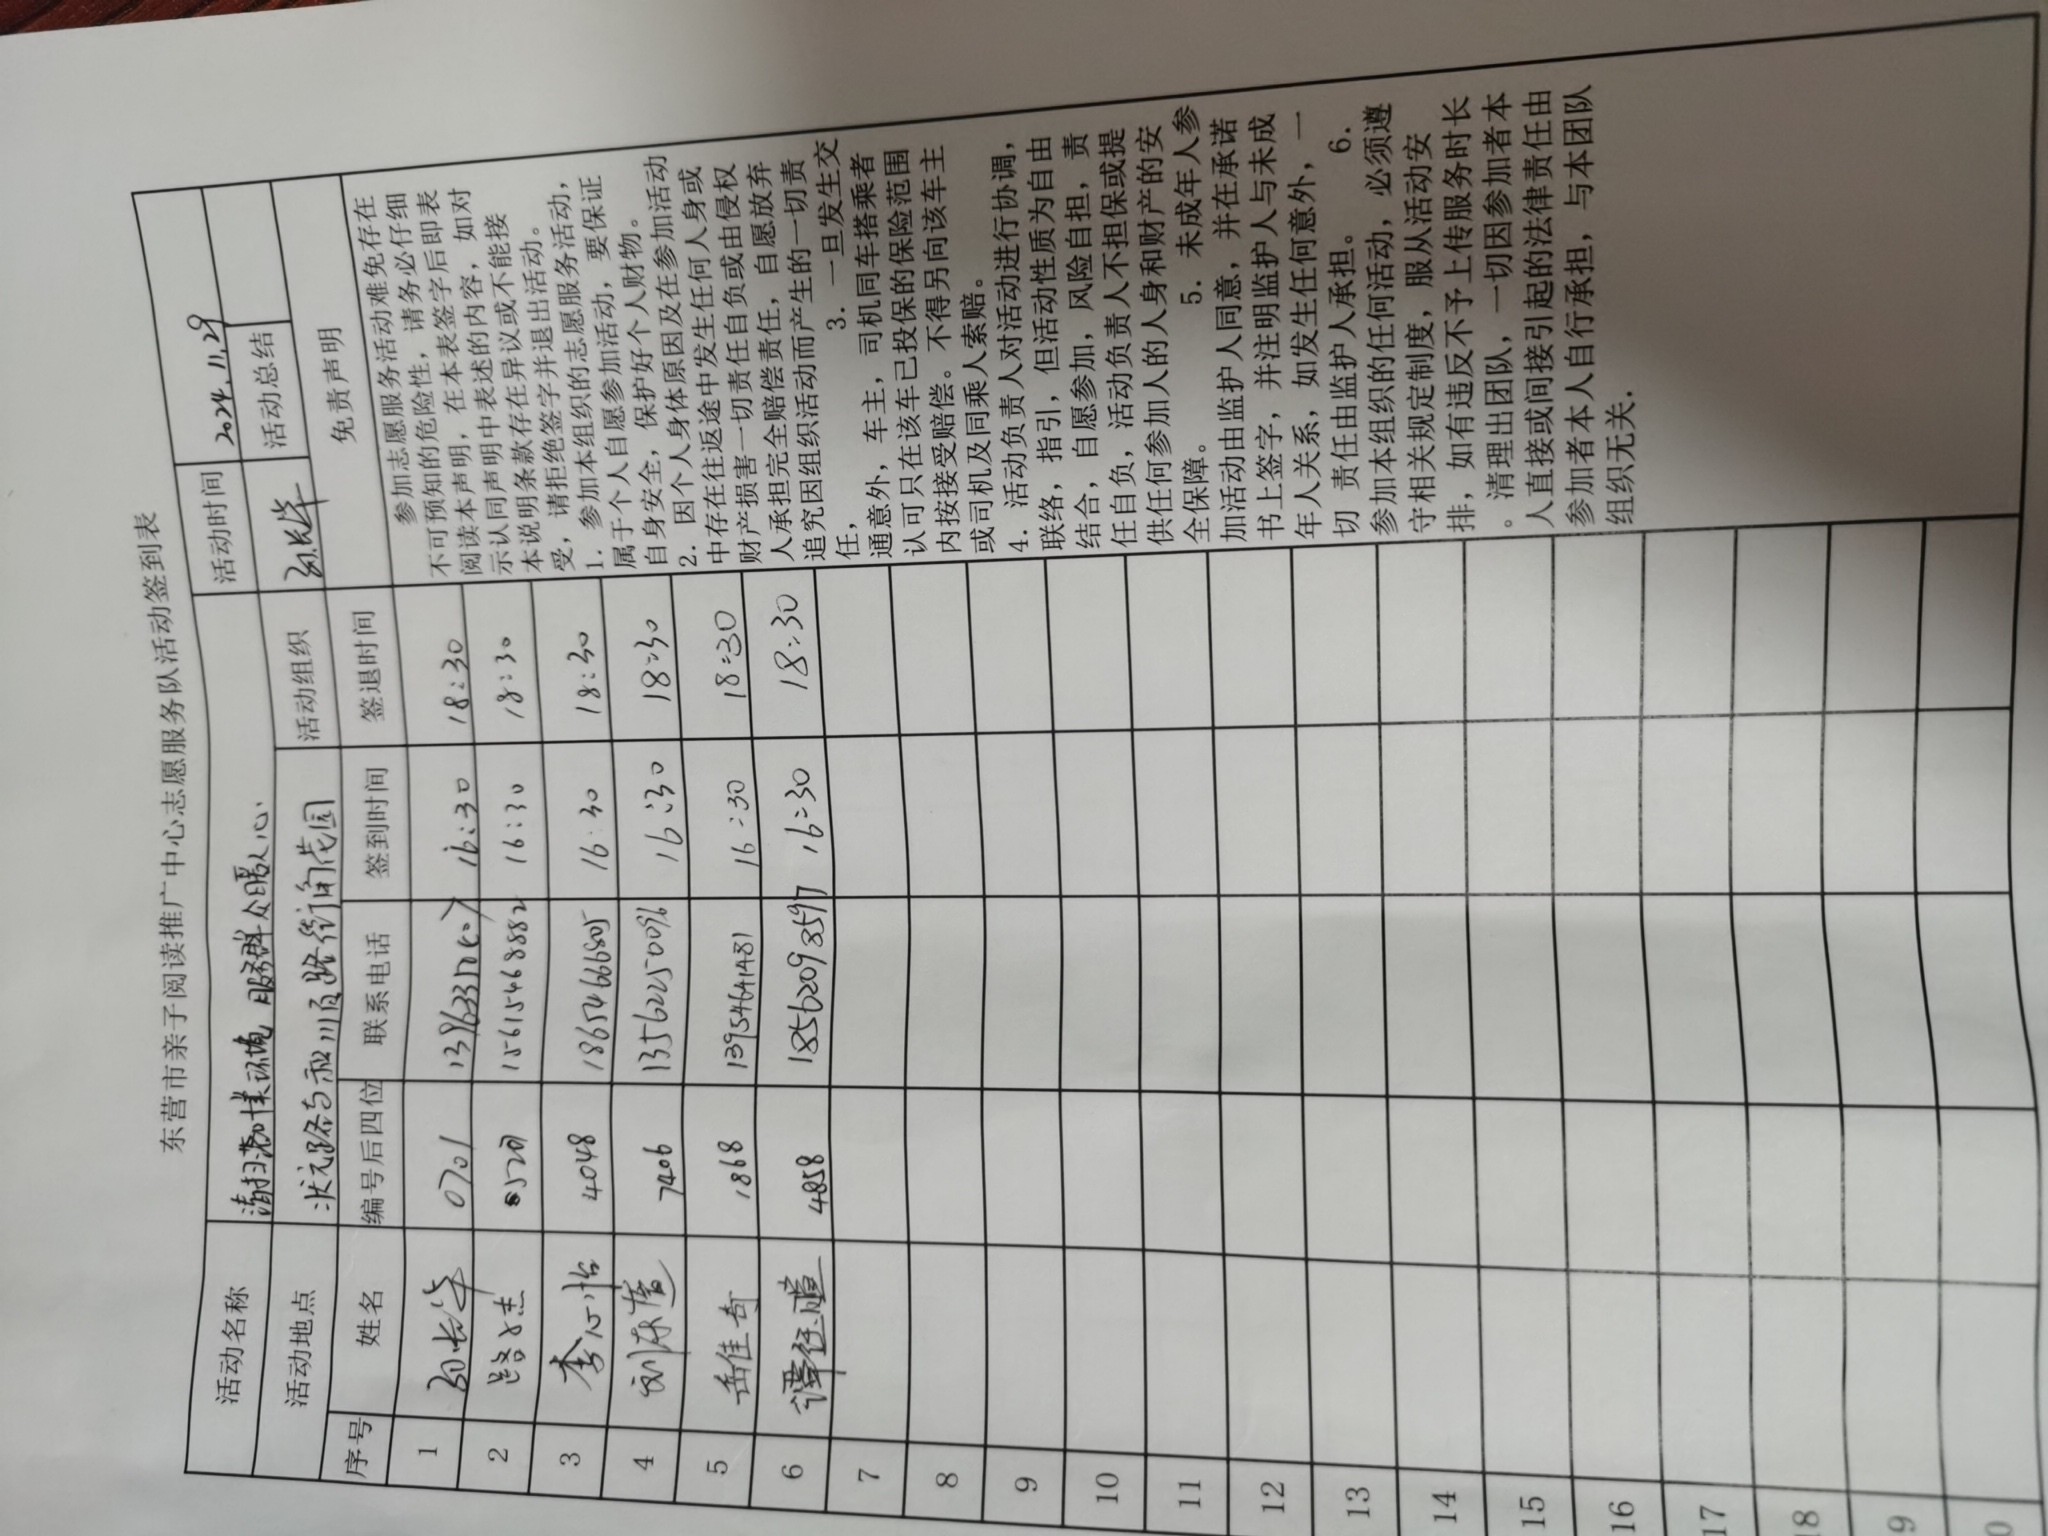 东营市亲子阅读推广中心志愿服务队活动签到表
活动名称 清扫楼环境 服务群众暖人心 活动时间 2024.11.29
活动地点 状元路与永川路街角花园 活动组织 活动总结
序号 姓名 编号后四位 联系电话 签到时间 签退时间 免责声明
1 0701 16:30 18:30
2 15615468882 16:30 18:30
3 李心怡 4048 18654666805 16:30 18:30
4 7406 13562250096 16:30 18:30
5 岳佳奇 1868 13954641481 16:30 18:30
6 4858 18562098597 16:30 18:30
7
8
9
10
11
12
13
14
15
16
17
18
参加志愿服务活动难免存在
不可预知的危险性，请务必仔细
阅读本声明，在本表签字后即表
示认同声明中表述的内容，如对
本说明条款存在异议或不能接
受，请拒绝签字并退出活动。
1. 参加本组织的志愿服务活动，
属于个人自愿参加活动，要保证
自身安全，保护好个人财物。
2. 因个人身体原因及在参加活动
中存在往返途中发生任何人身或
财产损害一切责任自负或由侵权
人承担完全赔偿责任，自愿放弃
追究因组织活动而产生的一切责
任， 3. 一旦发生交
通意外，车主，司机同车搭乘者
认可只在该车已投保的保险范围
内按接受赔偿。不得另向该车主
或司机及同乘人索赔。
4. 活动负责人对活动进行协调，
联络，指引，但活动性质为自由
结合，自愿参加，风险自担，责
任自负，活动负责人不担保或提
供任何参加人的人身和财产的安
全保障。 5. 未成年人参
加活动由监护人同意，并在承诺
书上签字，并注明监护人与未成
年人关系，如发生任何意外，一
切 责任由监护人承担。 6.
参加本组织的任何活动，必须遵
守相关规定制度，服从活动安
排，如有违反不予上传服务时长
。清理出团队，一切因参加者本
人直接或间接引起的法律责任由
参加者本人自行承担，与本团队
组织无关.